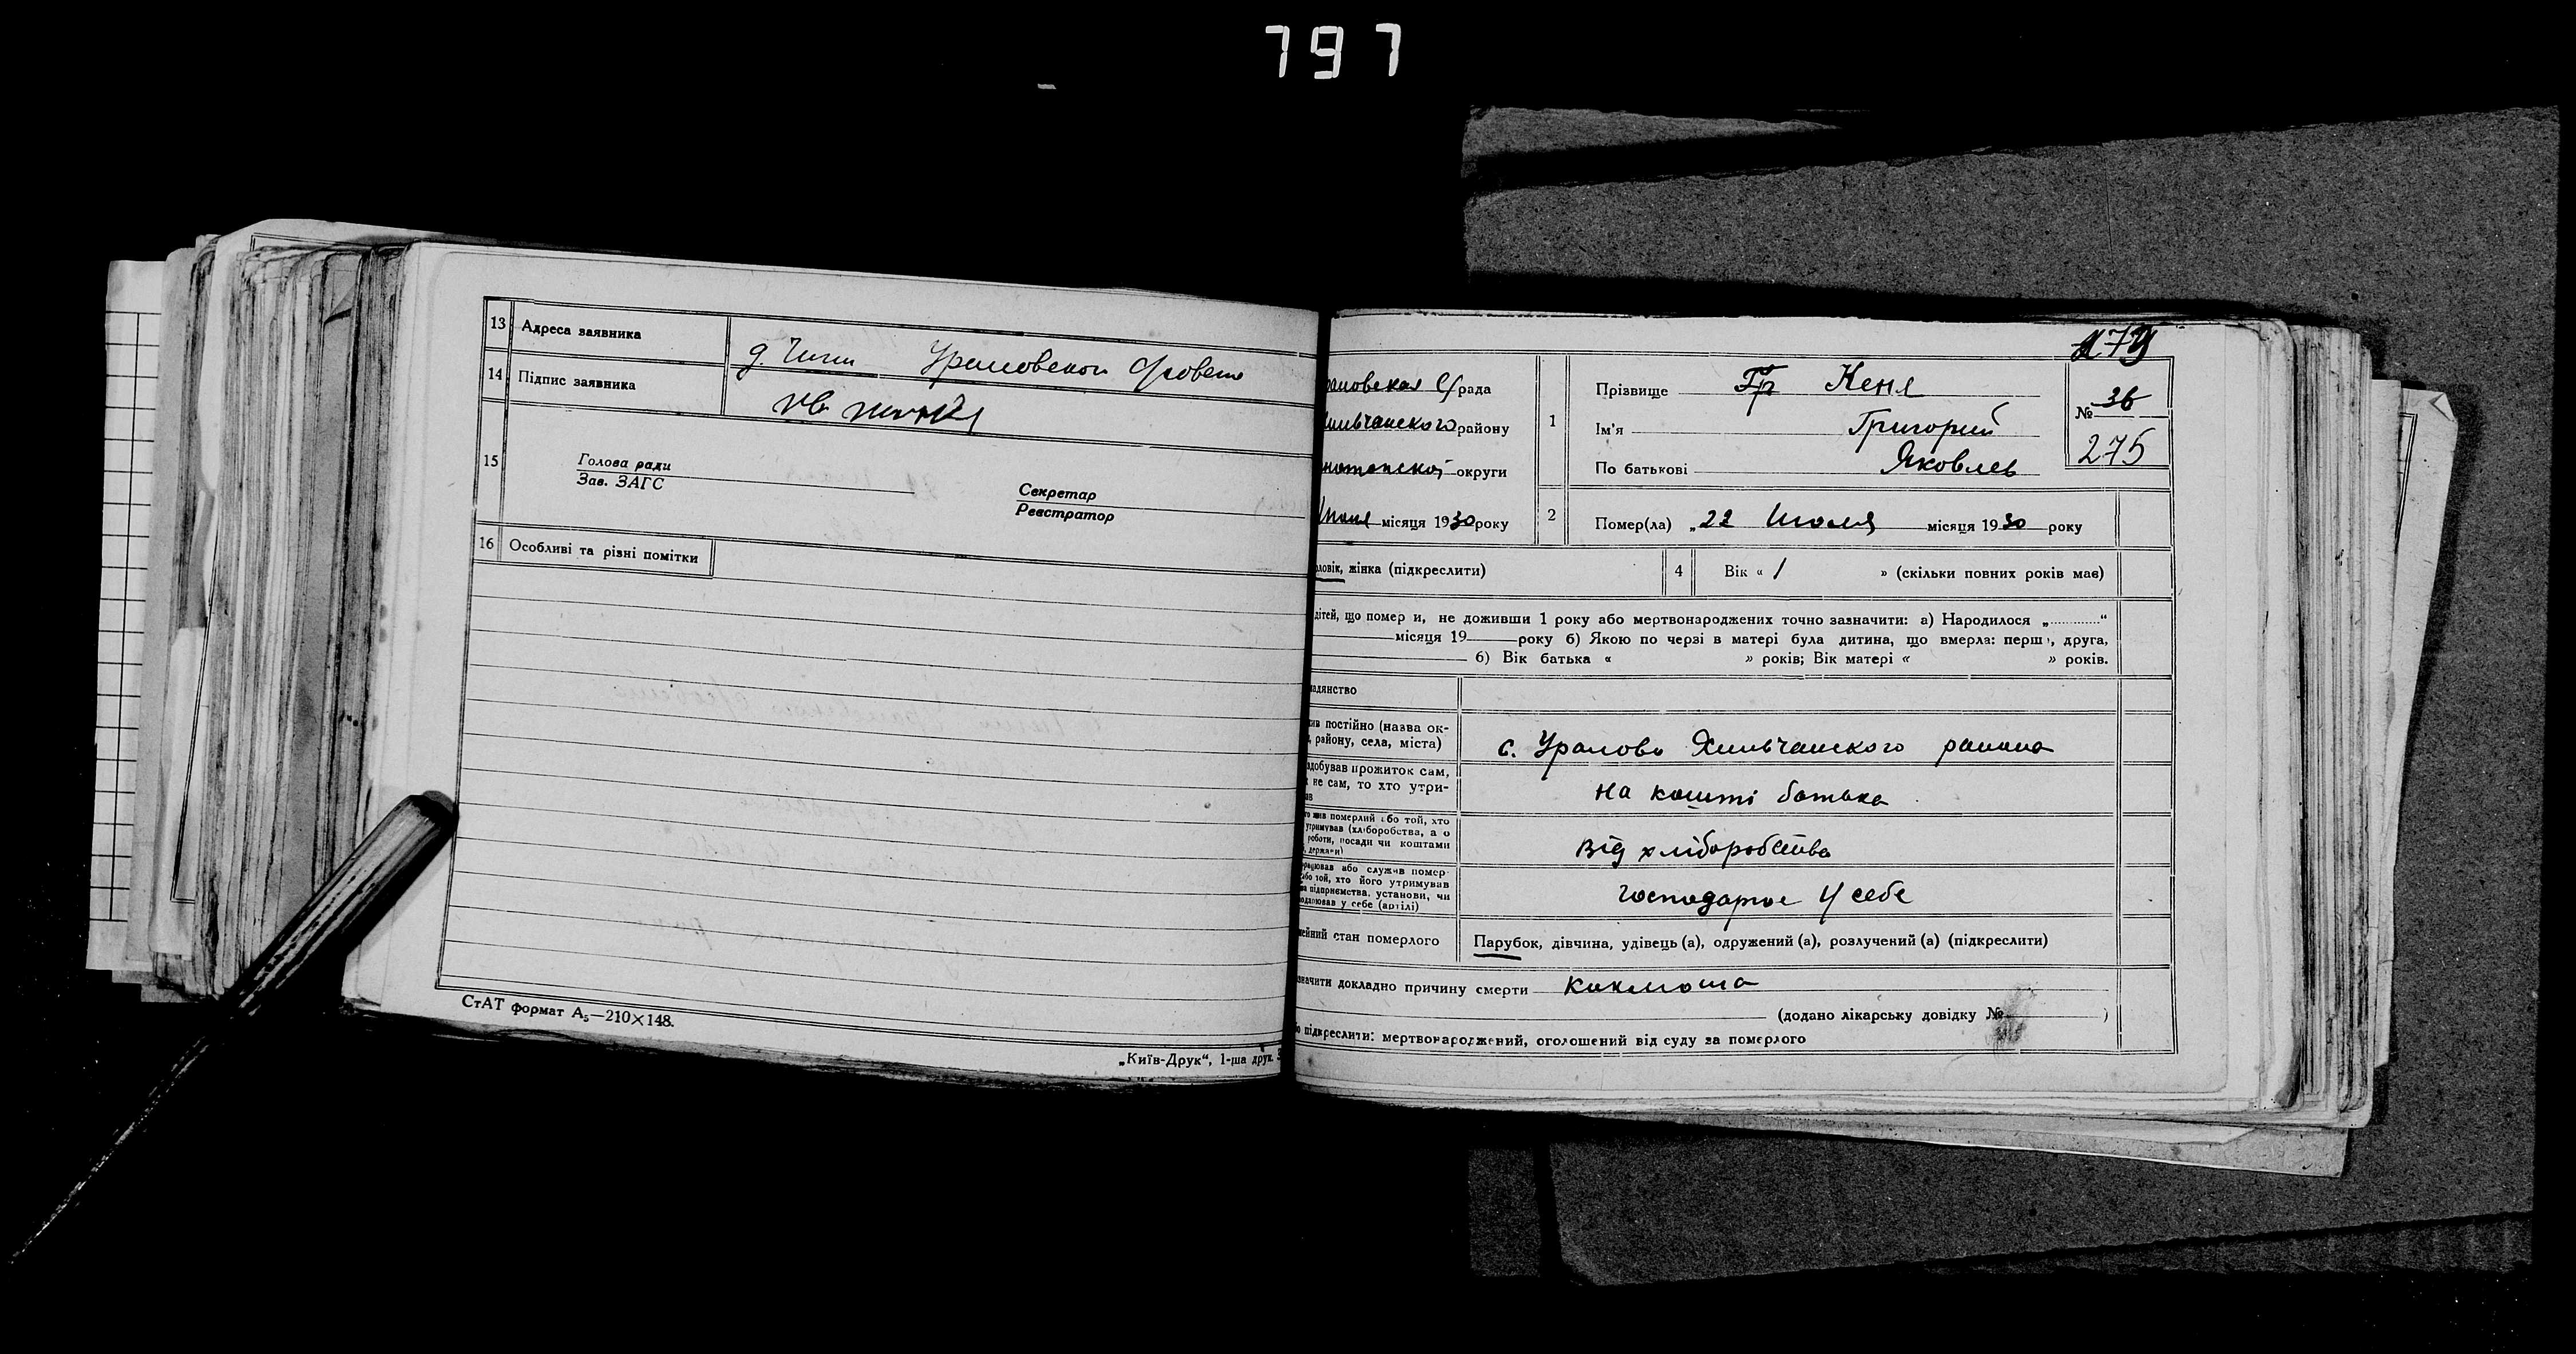 797
13 Адреса заявника
14 Підпис заявника
15 Голова ради
Зав. ЗАГС
Секретар
Реєстратор
16 Особливі та різні помітки
СтАТ формат А₅—210×148.
„Київ-Друк“, 1-ша друк.
рада
району
округи
місяця 1930 року
1 Прізвище Гр Кеня
Ім'я Григорий
По батькові Яковлев
№ 36
275
2 Помер(ла) „22 Июля місяця 1930 року
жінка (підкреслити)
4 Вік « 1 » (скільки повних років має)
дітей, що помер и, не доживши 1 року або мертвонароджених точно зазначити: а) Народилося „ “
місяця 19 року б) Якою по черзі в матері була дитина, що вмерла: перш , друга,
б) Вік батька « » років; Вік матері « » років.
постійно (назва ок-
району, села, міста)
с. Уралово Хильчанского района
добував прожиток сам,
не сам, то хто утри-
на кошті батька
померлий або той, хто
утримував (хліборобства, а о
роботи, посади чи коштами
від хліборобства
або служив помер-
або той, хто його утримував
підприємства, установи, чи
у себе (артілі)
господарює у себе
стан померлого Парубок, дівчина, удівець (а), одружений (а), розлучений (а) (підкреслити)
докладно причину смерти коклюша
(додано лікарську довідку № )
підкреслити: мертвонароджений, оголошений від суду за померлого